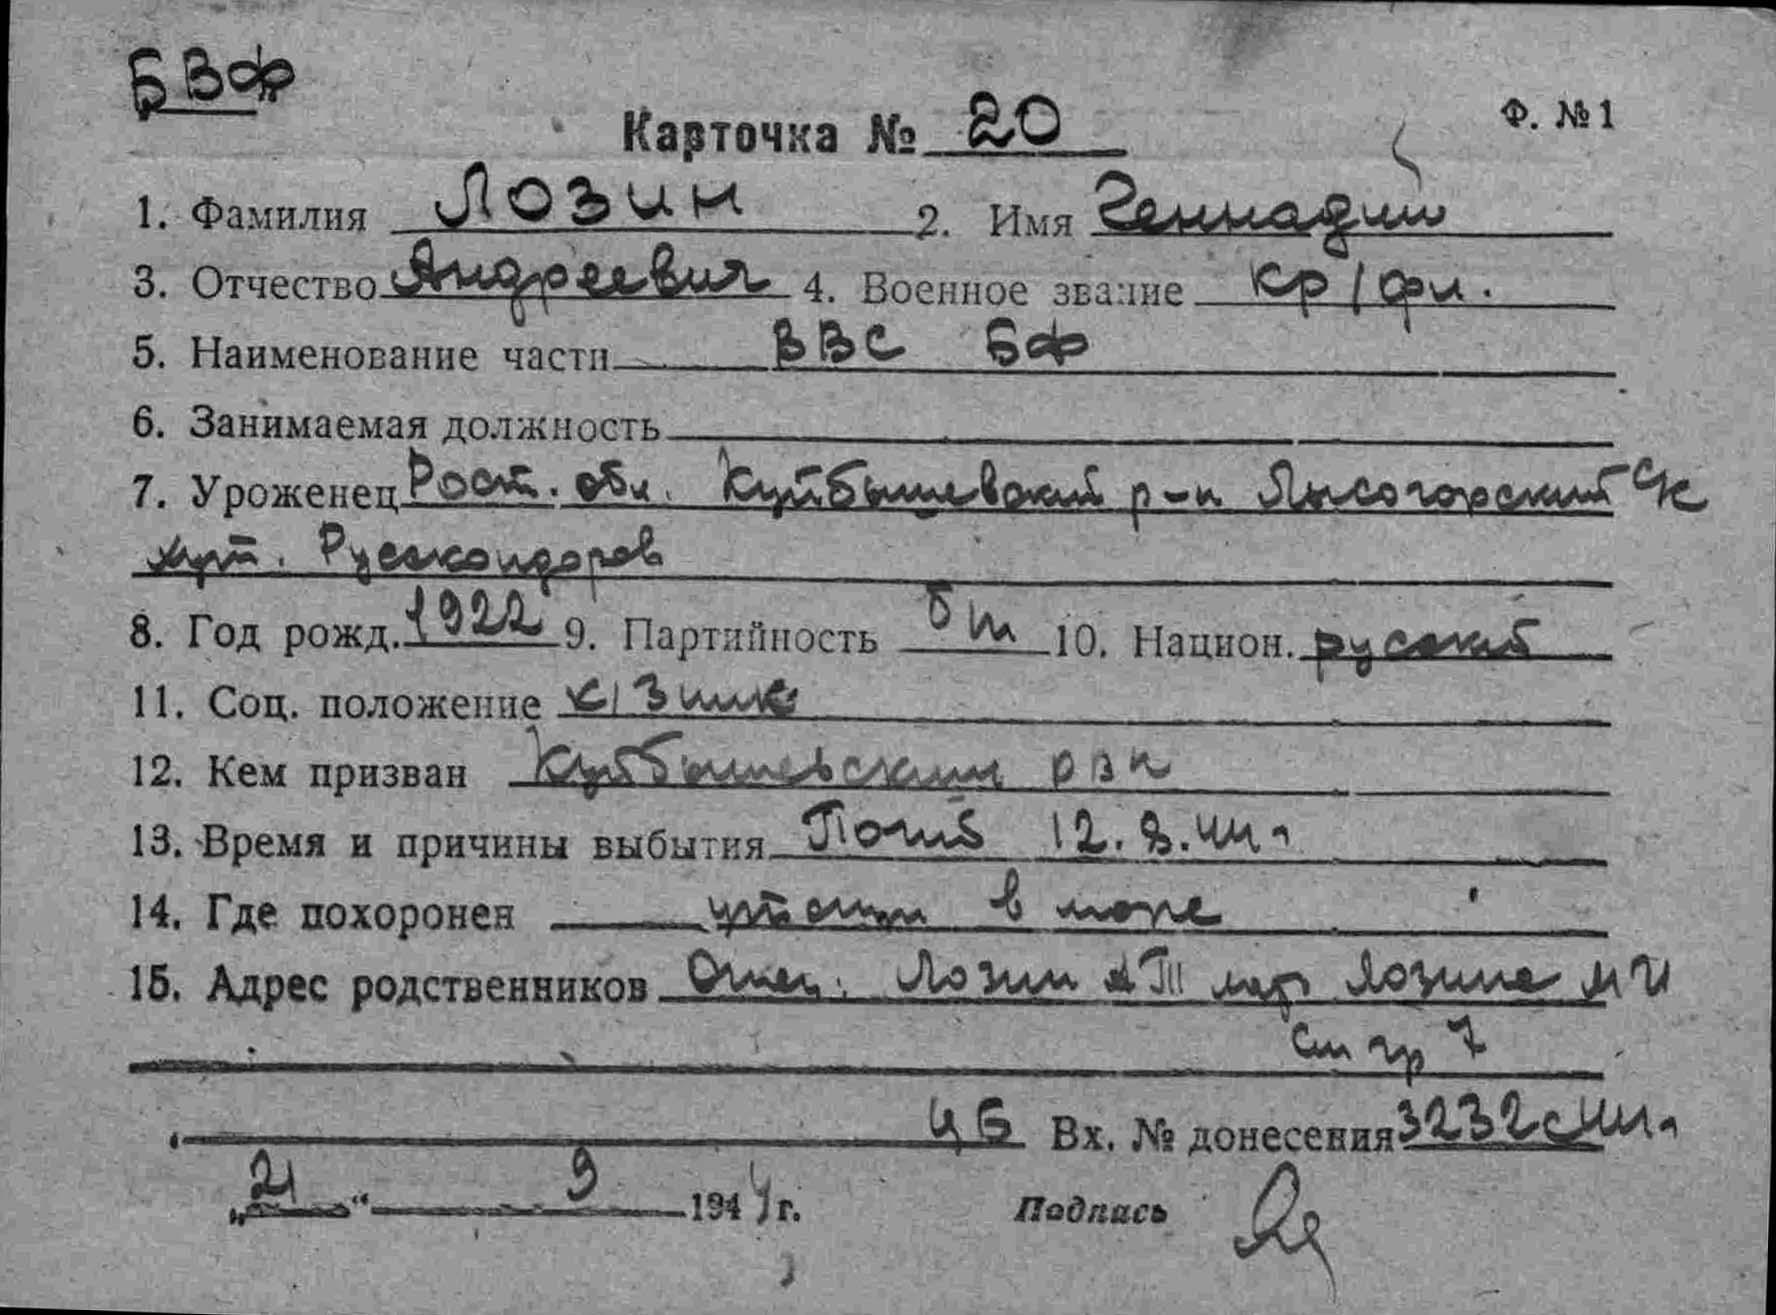 БВФ
Карточка № 20
Ф. № 1
1. Фамилия Лозин 2. Имя Геннадий
3. Отчество Андреевич 4. Военное звание кр/фл.
5. Наименование части ВВС БФ
6. Занимаемая должность
7. Уроженец Рост. обл. Куйбышевский р-н Лысогорский с/с
хут. Русскоидоров
8. Год рожд. 1922 9. Партийность б/п 10. Национ. русский
11. Соц. положение
12. Кем призван Куйбышевским рвк
13. Время и причины выбытия Погиб 12.8.44 г
14. Где похоронен в море
15. Адрес родственников Отец Лозин А Т мать Лозина М И
См гр 7
Вх. № донесения 3232с 44 г
„21“ 9 1944 г. Подпись